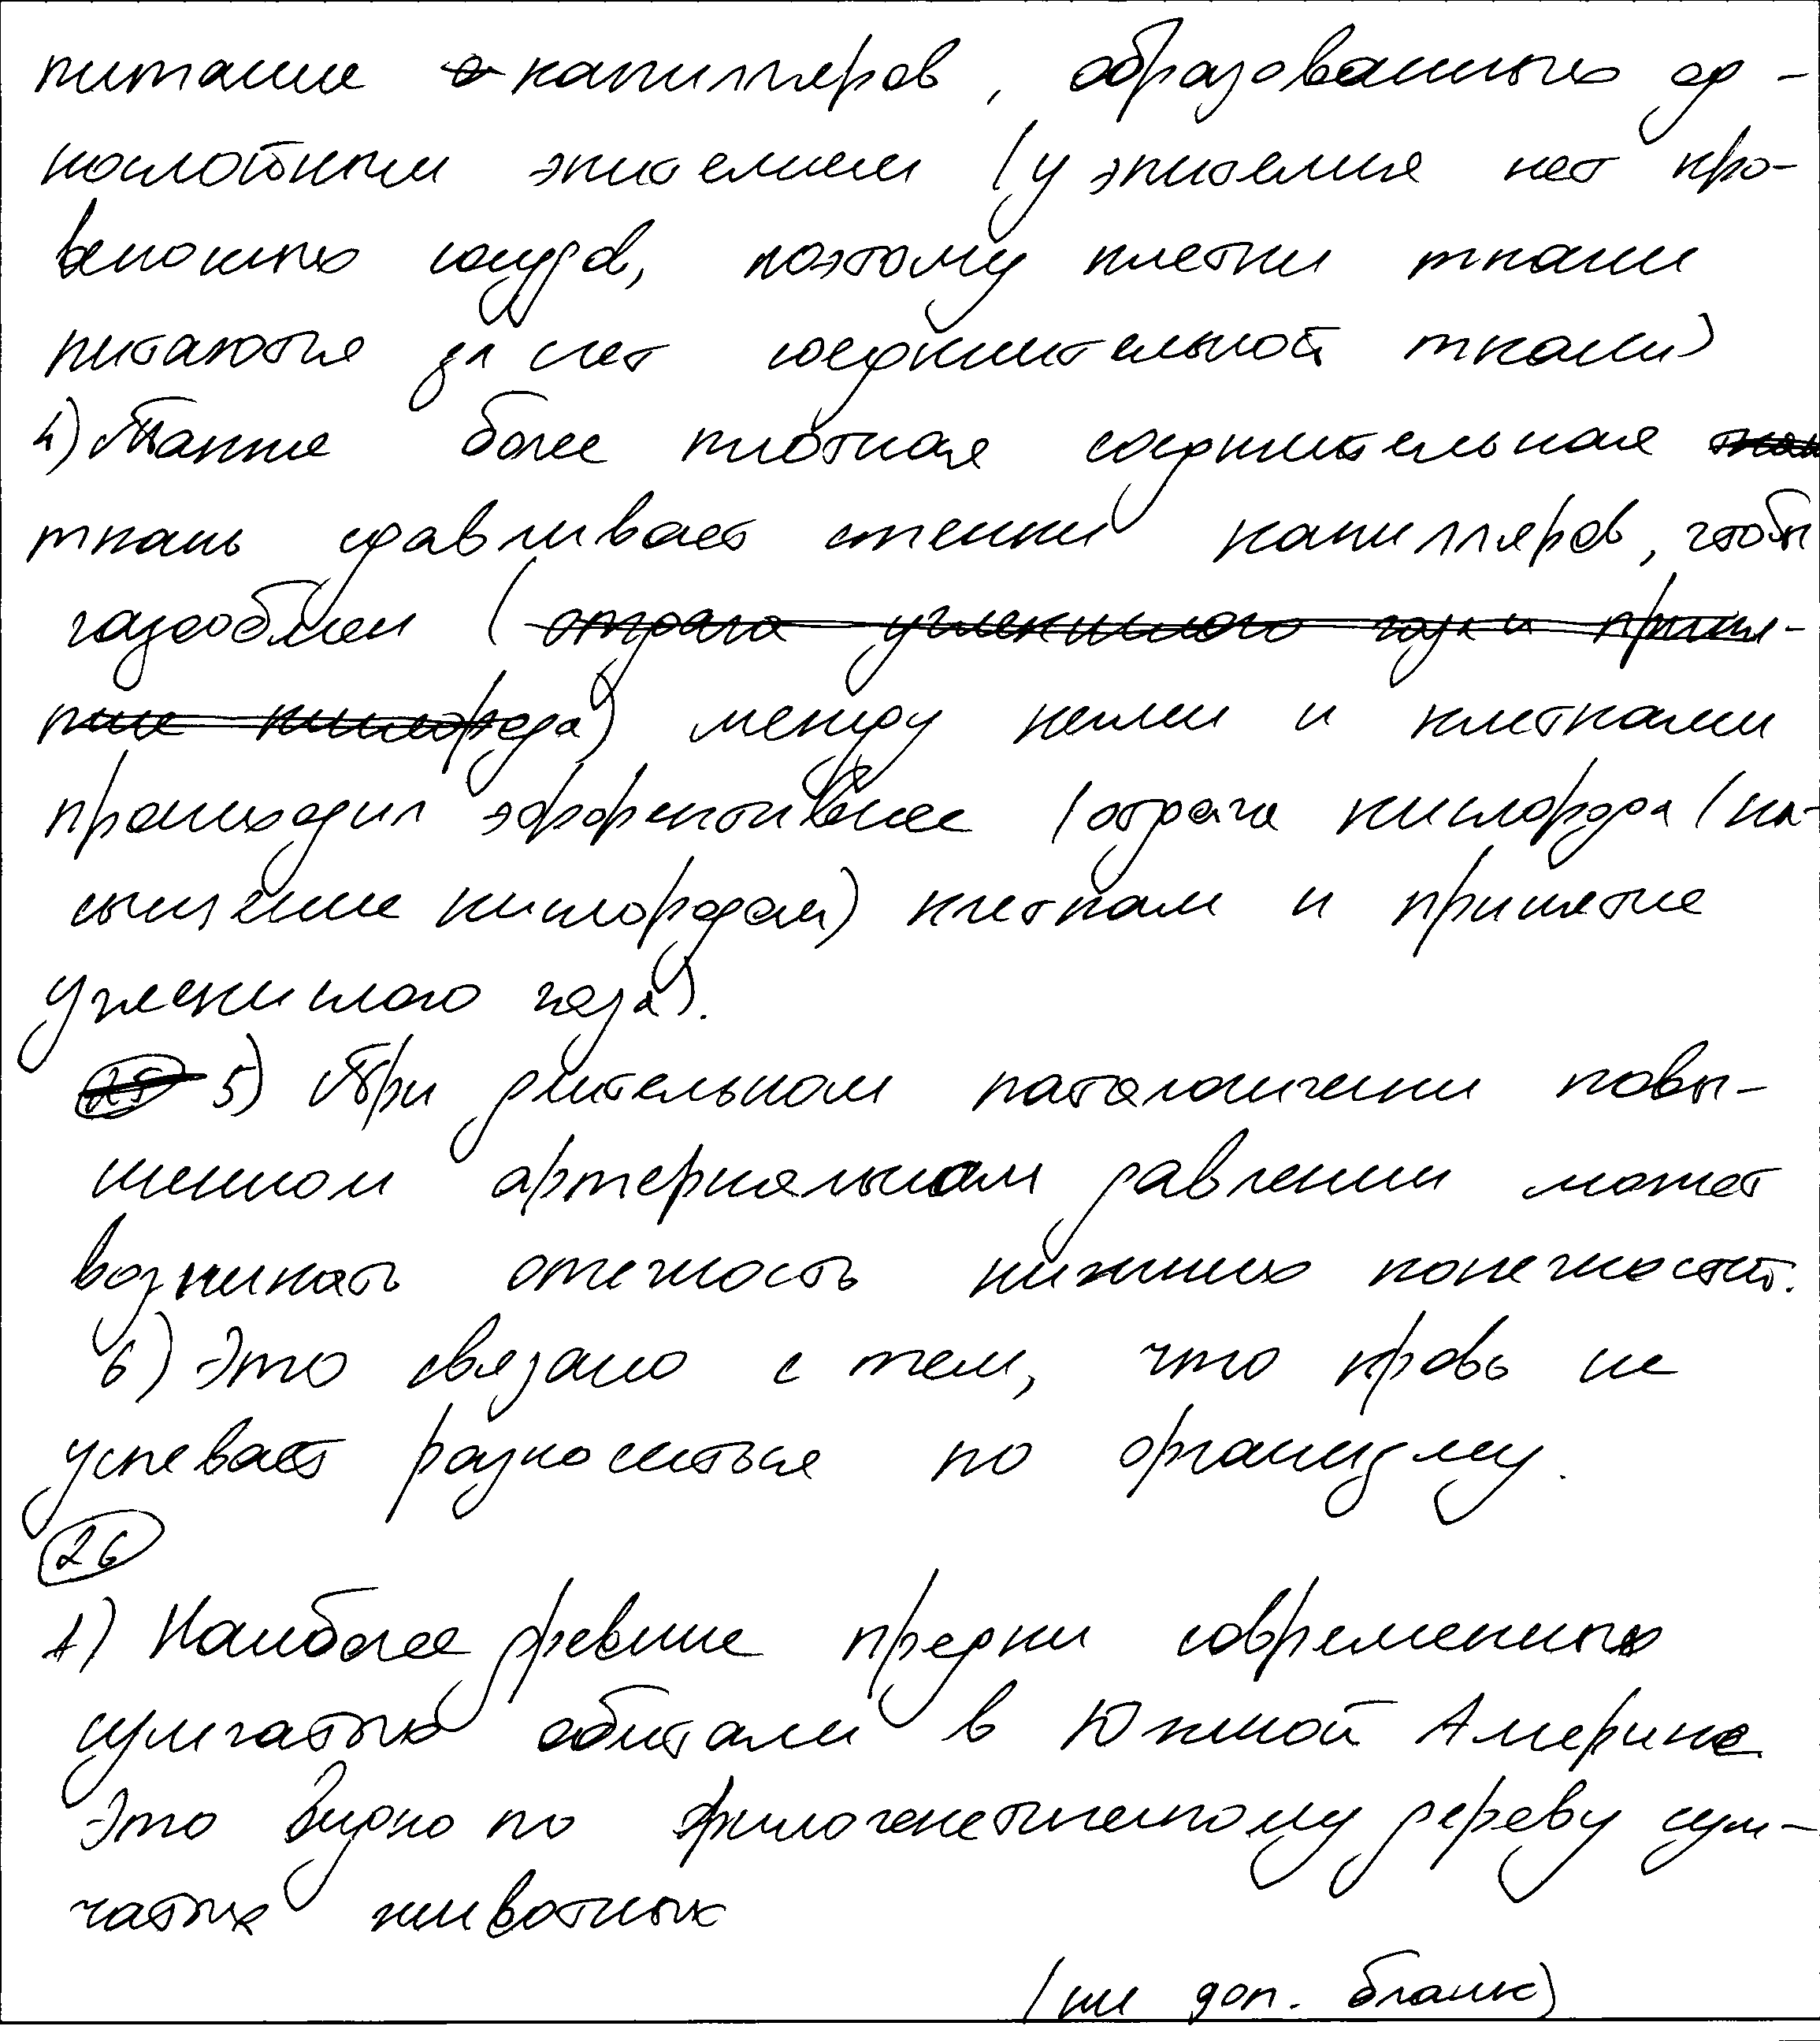 питание капилляров, образованных од-
нослойным эпителием (у эпителия нет кро-
веносных сосудов, поэтому клетки ткани
питаются за счет соединительной ткани)
4) Также более плотная соединительная
ткань сдавливает стенки капилляров, чтобы
газообмен (отдача углекислого газа и приня-
тие кислорода) между ними и клетками
происходил эффективнее (отдача кислорода (на-
сыщение кислородом) клеткам и принятие
углекислого газа).
25 5) При длительном патологически повы-
шенном артериальном давлении может
возникать отечность нижних конечностей.
6) Это связано с тем, что кровь не
успевает разноситься по организму.
26
1) Наиболее древние предки современных
сумчатых обитали в Южной Америке
Это видно по филогенетическому дереву сум-
чатых животных
(см доп. бланк)